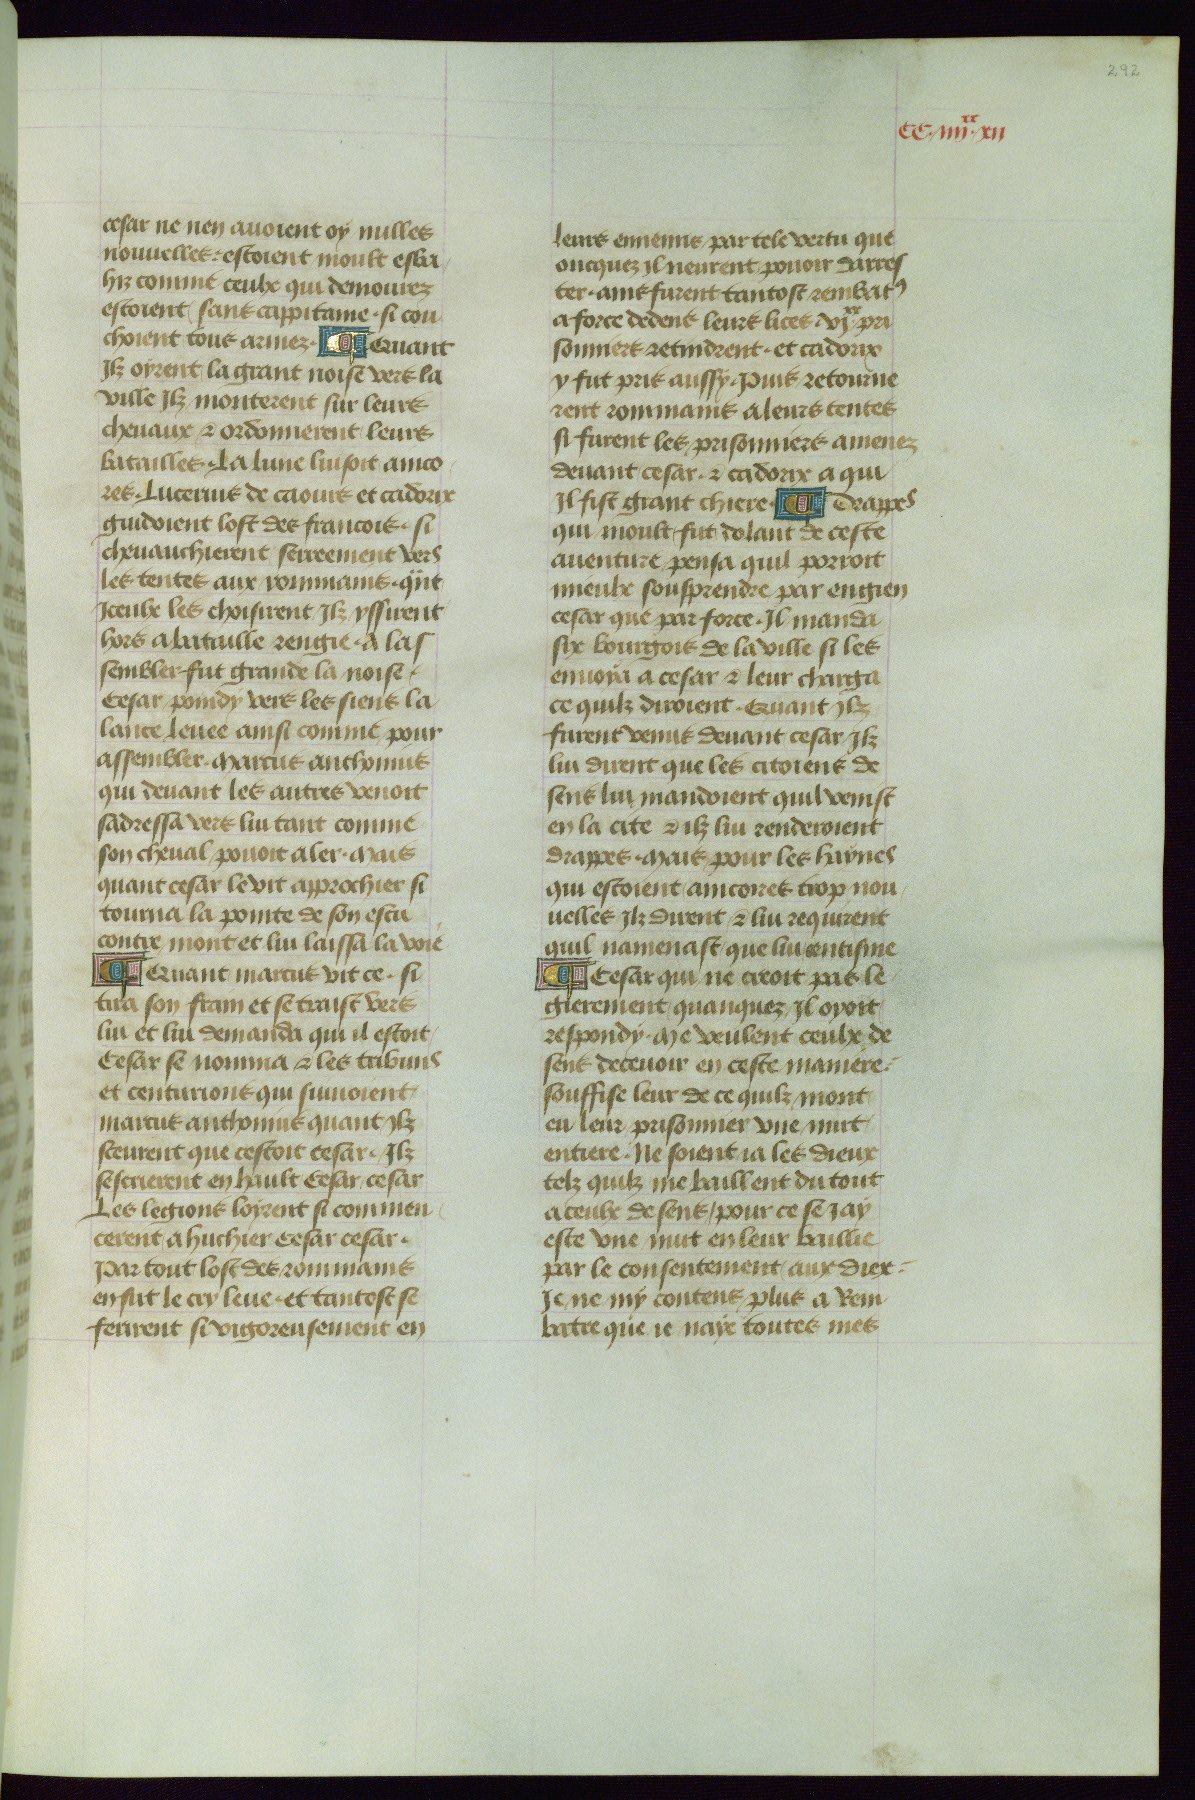 292
CC·iiij·xx·xii
cesar ne nen auoient oy nulles
nouuelles· estoient moult esba
hiz comme ceulx qui demourez
estoient sans cappitaine· si cou
choient tous armez· Quant
Jlz oyrent la grant noise vers la
ville Jlz monterent sur leurs
cheuaux & ordonnerent leurs
batailles· La lune luisoit ainco
res· Lucerius de caours et cadorix
guidoient lost des francois· si
cheuauchierent serreement vers
les tentes aux rommains· qnt
Jceulx les choisirent Jlz yssirent
hors a bataille rengie· a las
sembler fut grande la noise·
Cesar poindy vers les siens la
lance leuee ainsi comme pour
assembler· Marcus anthonius
qui deuant les autres venoit
sadressa vers lui tant comme
son cheual pouoit aler· Mais
quant cesar le vit approchier si
tourna la pointe de son escu
contre mont et lui laissa la voie
Quant marcus vit ce· si
tira son frain et se traist vers
lui et lui demanda qui il estoit
Cesar se nomma & les tribuns
et centurions qui suiuoient
marcus anthonius quant Jlz
sceurent que cestoit cesar· Jlz
sescrierent en hault Cesar cesar
Les legions loyrent si commen
cerent a huchier Cesar cesar·
Par tout lost des rommains
en fut le cry leue· et tantost se
ferirent si vigoreusement en
leurs ennemis par tele vertu que
oncquez Jl neurent pouoir darres
ter· ains furent tantost rembat9
a force dedens leurs lices & vjxx pri
sonniers retindrent· et cadorix
y fut pris aussy· Puis retourne
rent rommains a leurs tentes
si furent les prisonniers amenez
deuant cesar· & cadorix a qui
Jl fist grant chiere· Drappes
qui moult fut dolant de ceste
auenture pensa quil porroit
mieulx sousprendre par engien
cesar que par force· Jl manda
six bourgois de la ville si les
enuoya a cesar & leur charga
ce quilz diroient· Quant Jlz
furent venus deuant cesar Jlz
lui dirent que les citoiens de
sens lui mandoient quil venist
en la cite & ilz lui renderoient
drappes· Mais pour les haynes
qui estoient aincores trop nou
uelles Jlz dirent & lui requirent
quil namenast que lui centisme
Cesar qui ne creoit pas le
gierement quanquez Jl oyoit
respondy· Me veulent ceulx de
sens deceuoir en ceste maniere·
souffise leur de ce quilz mont
eu leur prisonnier vne nuit
entiere· Ne soient ia les dieux
telz quilz me baillent du tout
a ceulx de sens / pour ce se Jay
este vne nuit en leur baillie
par le consentement aux diex·
Je ne my contens plus a Rem
batre que ie naye toutes mes